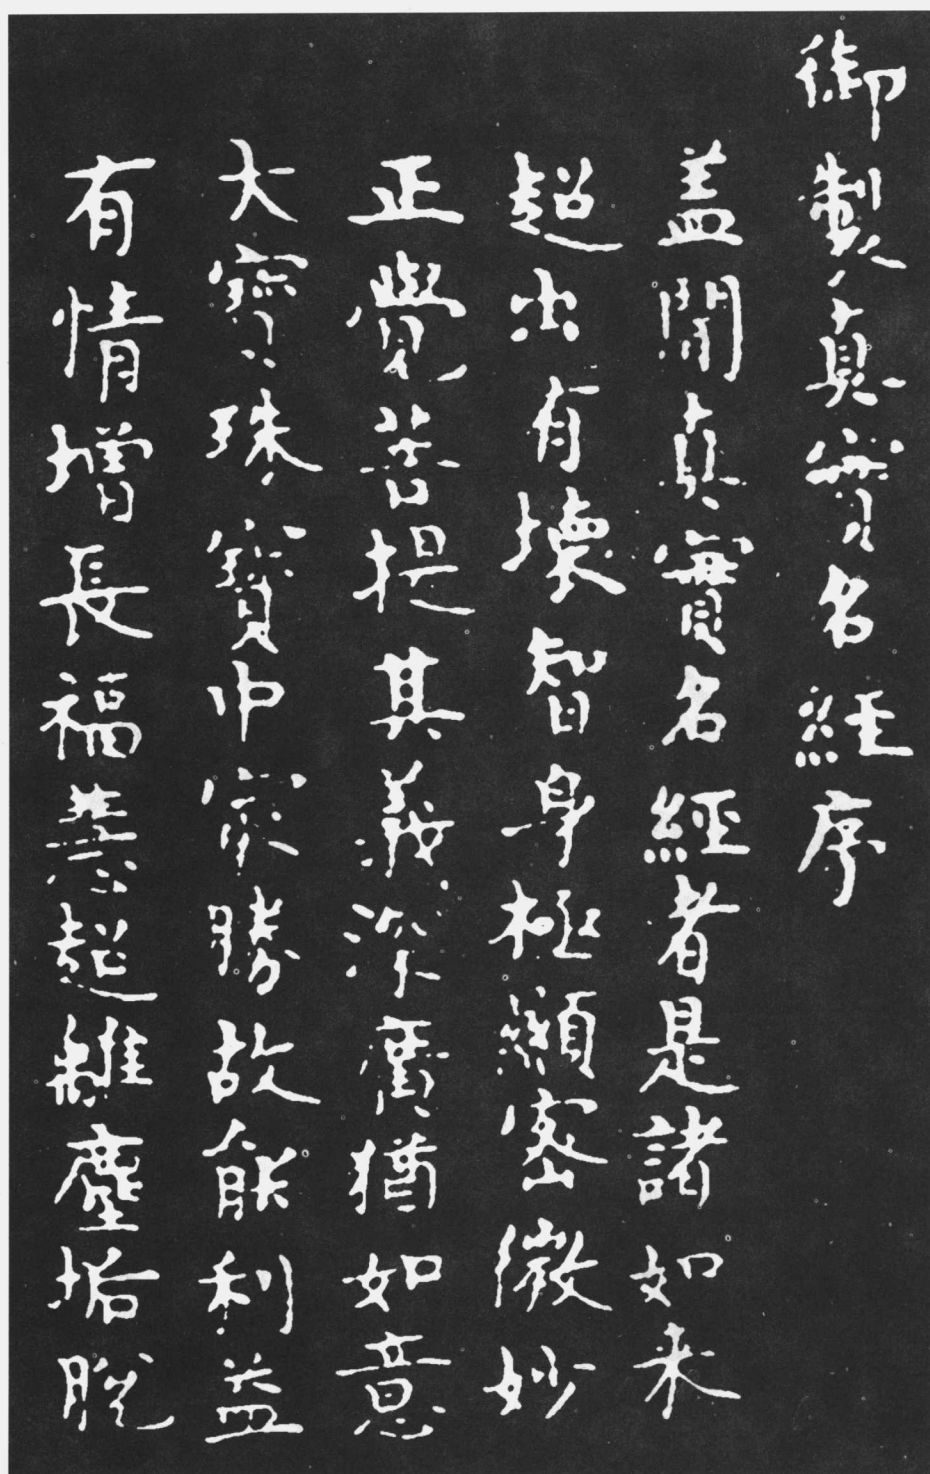 御製真實名經序
蓋聞真實名經者是諸如来
超出有壞智身極顯密微妙
正覺菩提其義深廣猶如意
大寶珠寶中家勝故能利益
有情增長福慧超離塵垢脫